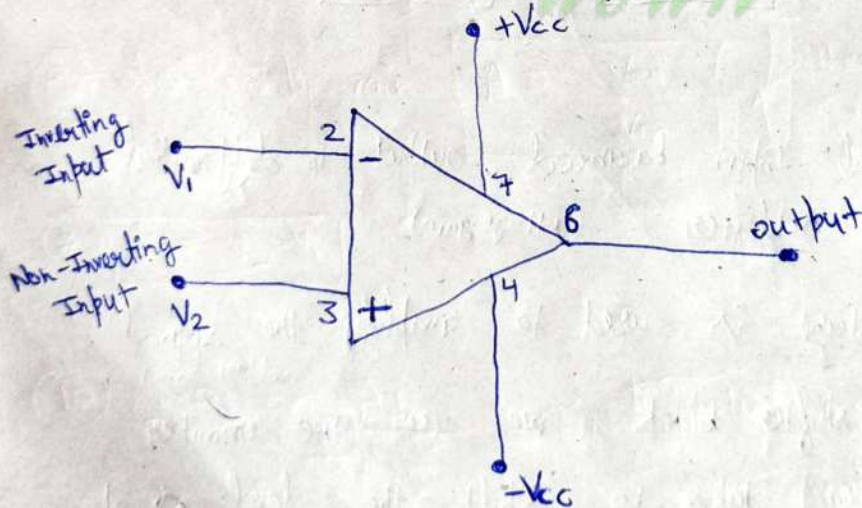 +Vcc
Inverting
Input
V1
2
-
7
6
output
Non-Inverting
Input
V2
3
+
4
-Vcc